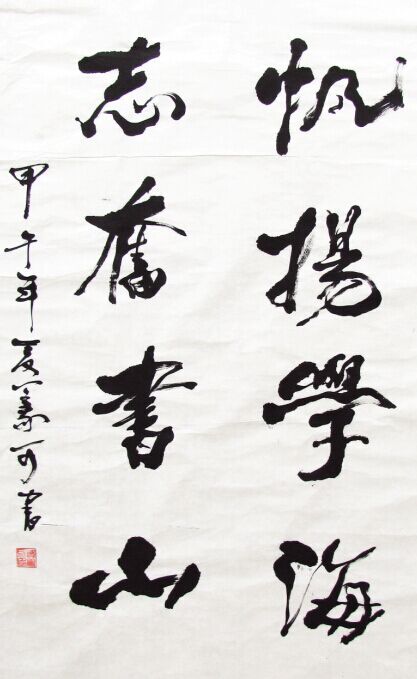 帆揚學海
志奮書山
甲午年夏
可書